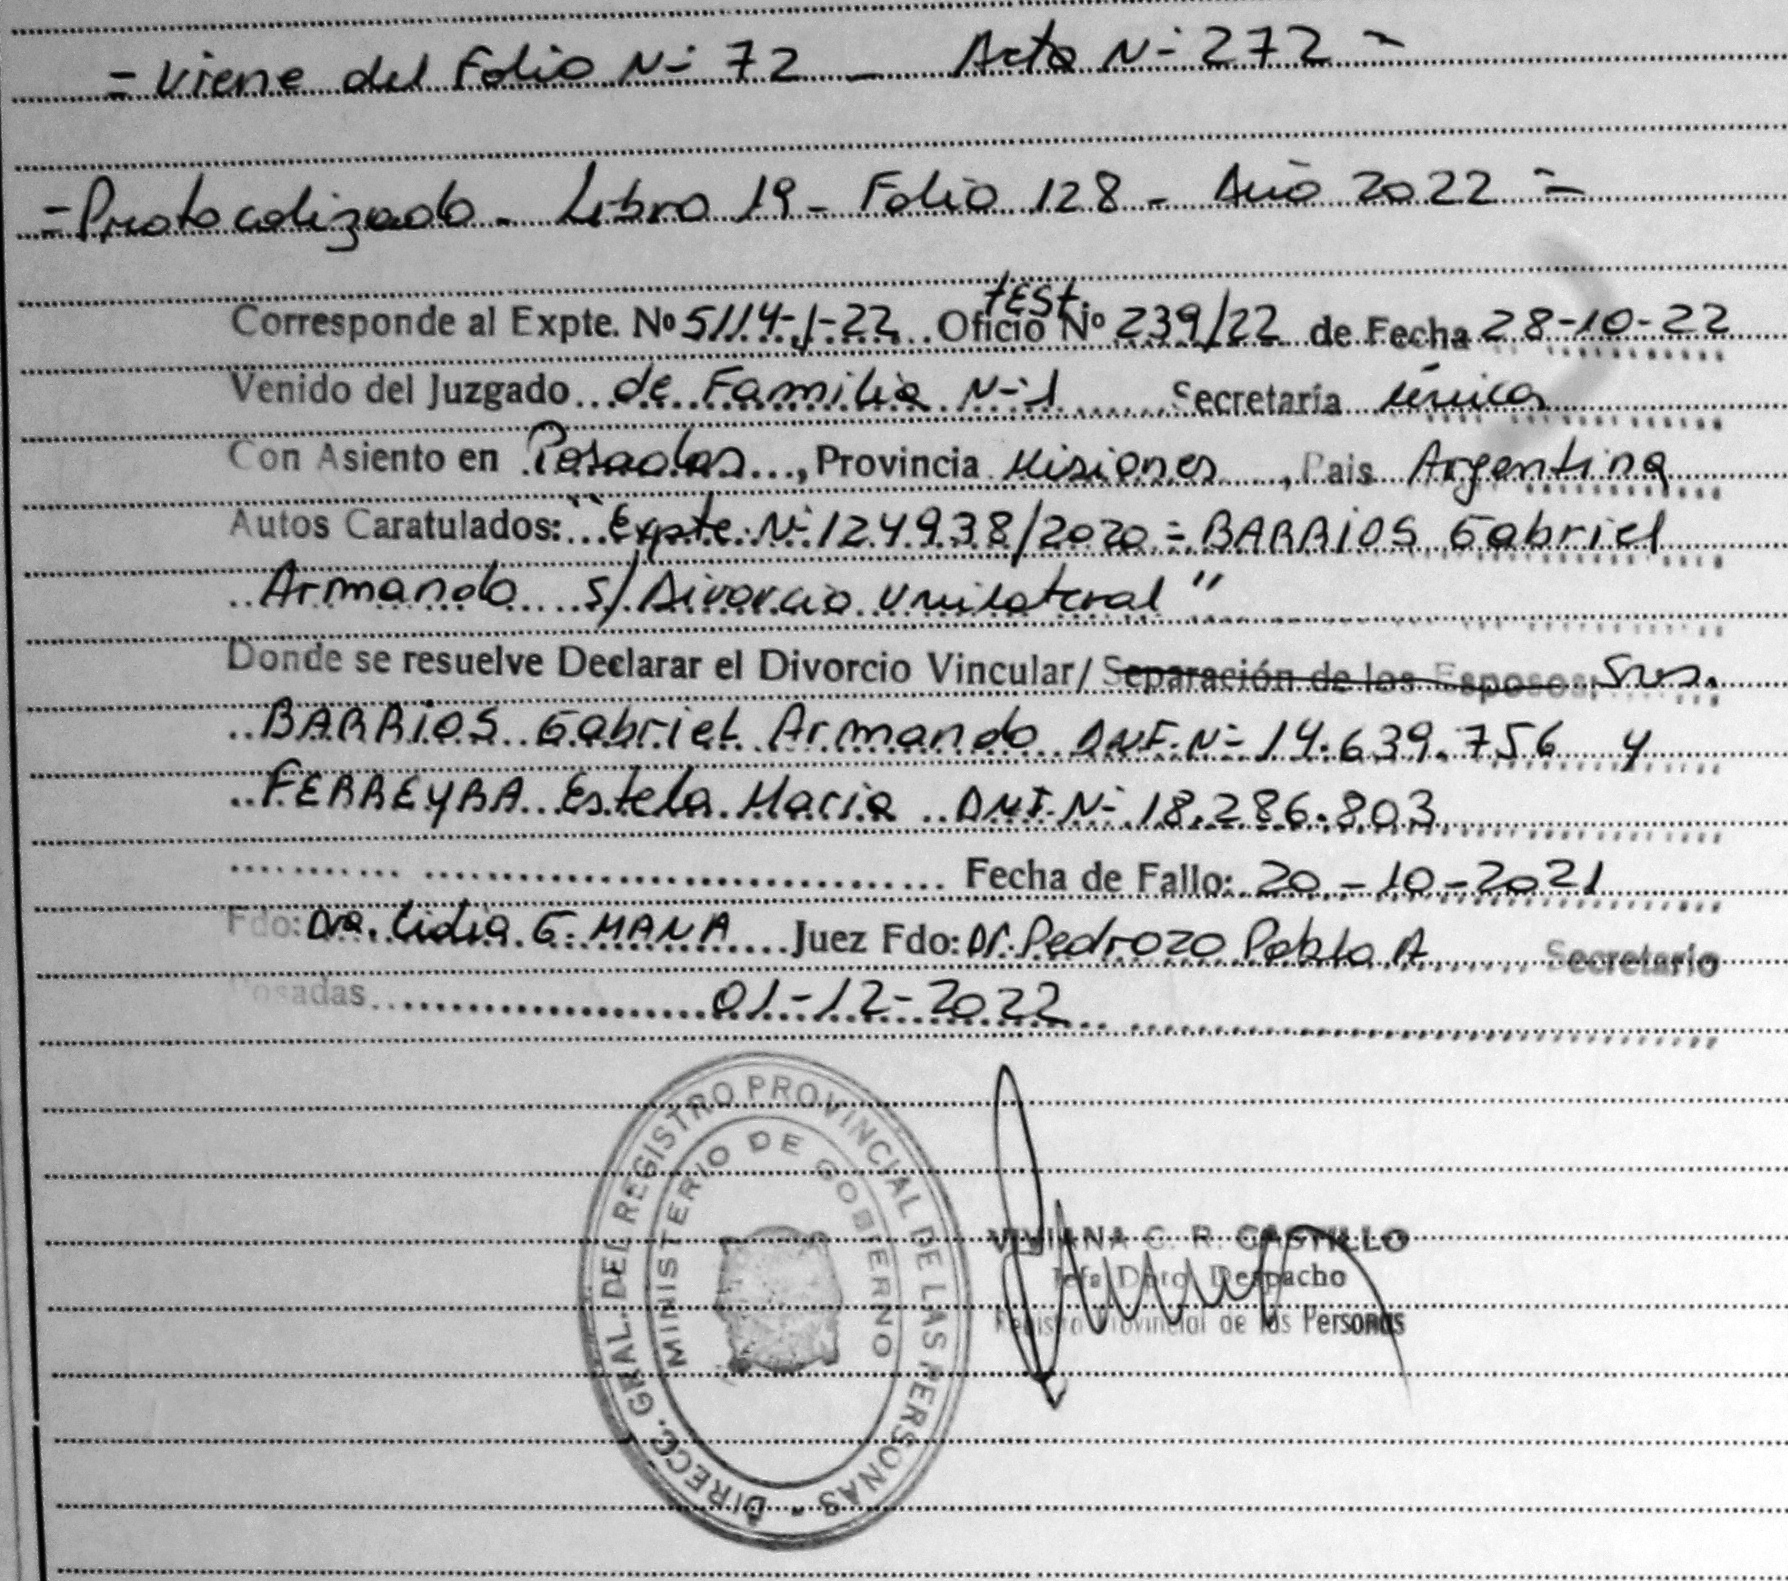 = Viene del Folio N- 72 - Acta N- 272 =
= Protocolizado - Libro 19 - Folio 128 - Año 2022 =
test.
Corresponde al Expte. Nº 5114-J-22 Oficio Nº 239/22 de Fecha 28-10-22
Venido del Juzgado de Familia N-1 Secretaría única
Con Asiento en Posadas, Provincia Misiones, Pais Argentina
Autos Caratulados: "Expte. N- 124938/2020 = BARRIOS Gabriel
Armando s/ Divorcio Unilateral"
Donde se resuelve Declarar el Divorcio Vincular/ Separación de los Esposos: Sres.
BARRIOS Gabriel Armando DNI. N- 14.639.756 y
FERREYRA Estela Maria DNI. N- 18.286.803
Fecha de Fallo: 20-10-2021
Fdo: Dra. Lidia G. MANA Juez Fdo: Dr. Pedrozo Pablo A Secretario
Posadas 01-12-2022
DIRECC. GRAL. DEL REGISTRO PROVINCIAL DE LAS PERSONAS
MINISTERIO DE GOBIERNO
VIVIANA C. R. CASTILLO
Jefa Dpto. Despacho
Registro Provincial de las Personas